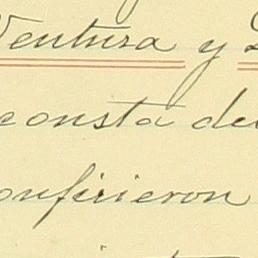 Ventura y
consta de
onfirieron